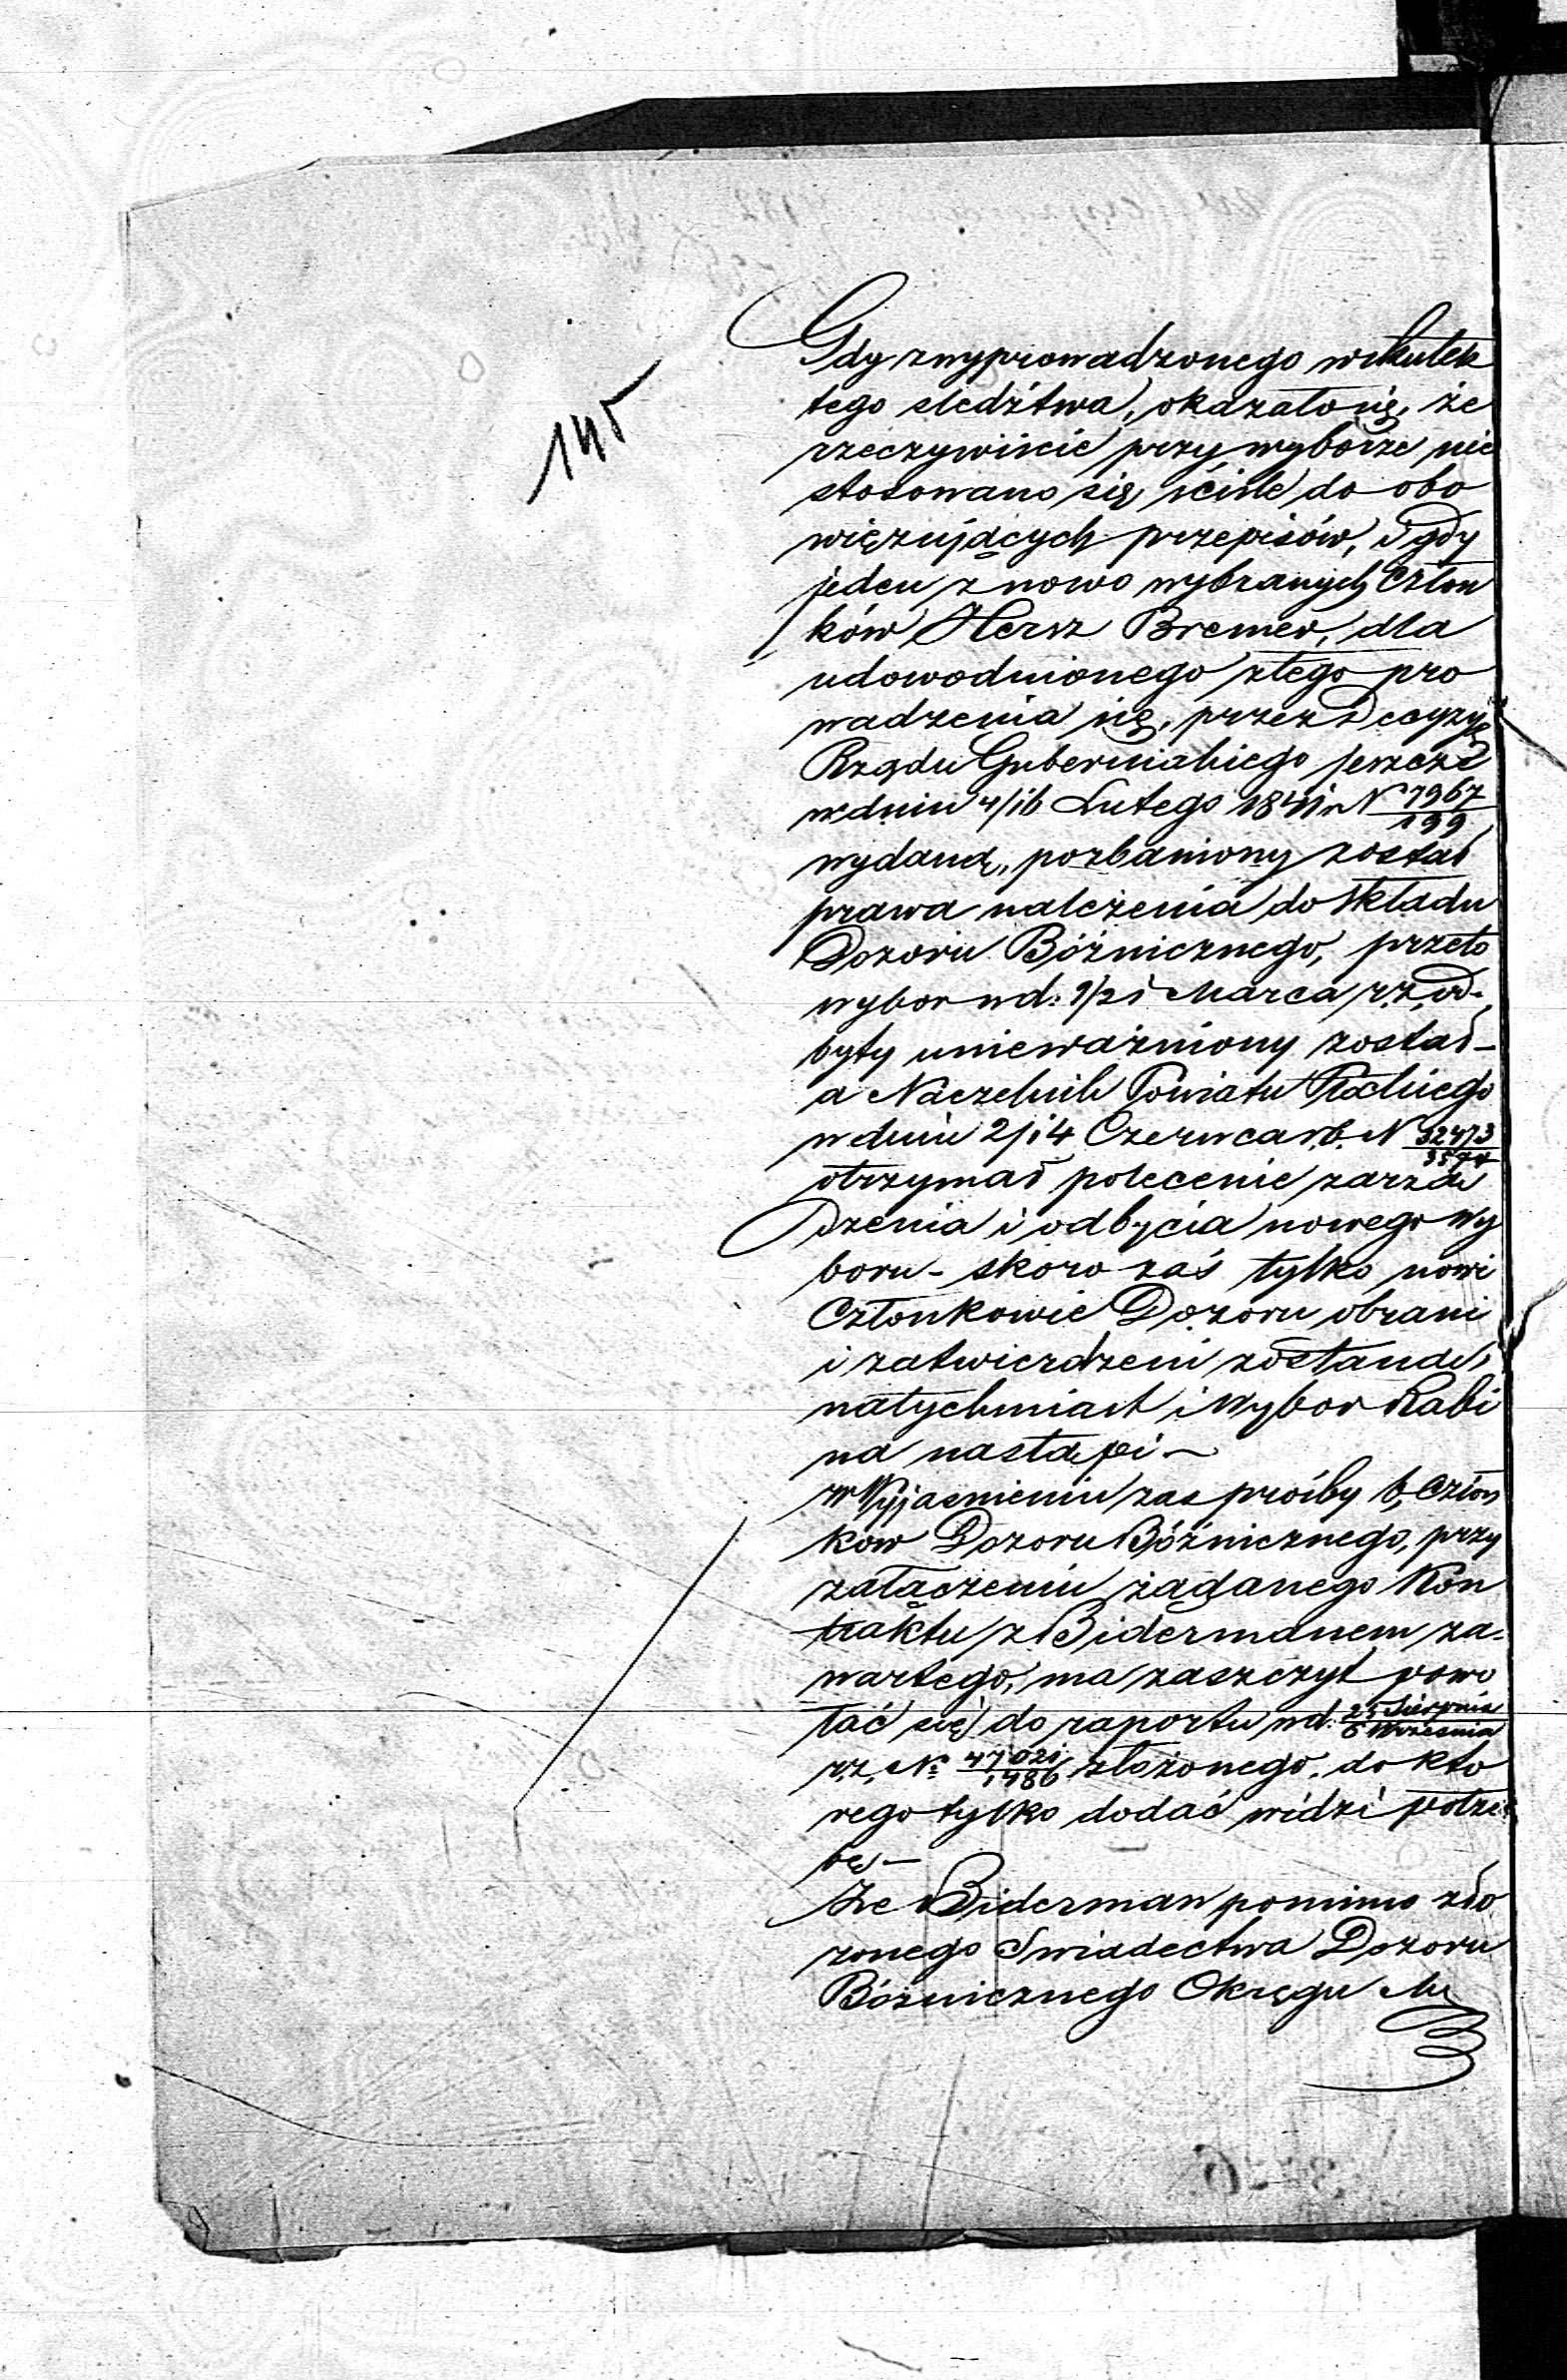 145
Gdy z wyprowadzonego wskutek
tego sledźtwa, okazało się, że
rzeczywiście przy wyborze nie
stosowano się ściśle do obo
więzujących przepisów, i gdy
jeden z nowo wybranych Człon
ków Hersz Bremer, dla
udowodnionego złego pro
wadzenia się, przez Decyzyę
Rządu Gubernialnego jeszcze
w dniu 4/16 Lutego 1841 r N 7967/199
wydaną, pozbawiony został
prawa należenia do składu
Dozoru Bóżnicznego, przeto
wybor w d: 9/21 Marca r.z. od-
byty unieważniony został –
a Naczelnik Powiatu Płockiego
w dniu 2/14 Czerwca r.b. N 32473/3574
otrzymał polecenie zarzą
dzenia i odbycia nowego wy
boru – skoro zaś tylko nowi
Członkowie Dozoru obrani
i zatwierdzeni zostaną,
natychmiast i wybor Rabi
na nastąpi –
W Wyjasnieniu zas prośby b. Człon
kow Dozoru Bóżnicznego, przy
załączeniu żądanego Kon
traktu z Bidermanem za-
wartego, ma zaszczyt powo
łać się do raportu w d. 25 Sierpnia/6 Września
r.z. № 47021/1486 złożonego, do kto
rego tylko dodać widzi potrze
bę –
Że Biderman pomimo zło
zonego Swiadectwa Dozoru
Bóżnicznego Okręgu